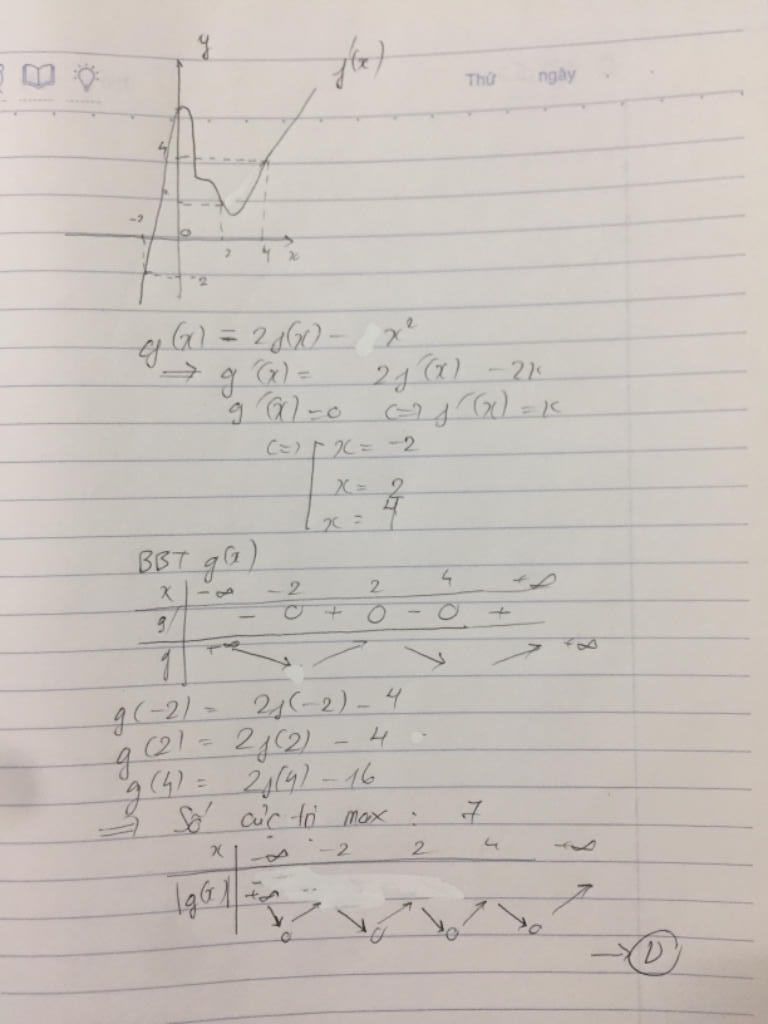 y
f'(x)
Thứ ngày
4
-2 0 2 4 x
-2
g(x) = 2f(x) - x²
=> g'(x) = 2f'(x) - 2x
g'(x) = 0 <=> f'(x) = x
<=> [ x = -2
x = 2
x = 4
BBT g(x)
x | -∞ -2 2 4 +∞
g' | - 0 + 0 - 0 +
g | +∞ ↘ ↗ ↘ ↗ +∞
g(-2) = 2f(-2) - 4
g(2) = 2f(2) - 4
g(4) = 2f(4) - 16
=> Số cực trị max : 7
x | -∞ -2 2 4 +∞
|g(x)| | +∞ ↘ 0 ↗ ↘ 0 ↗ ↘ 0 ↗ ↘ 0 ↗
→ D